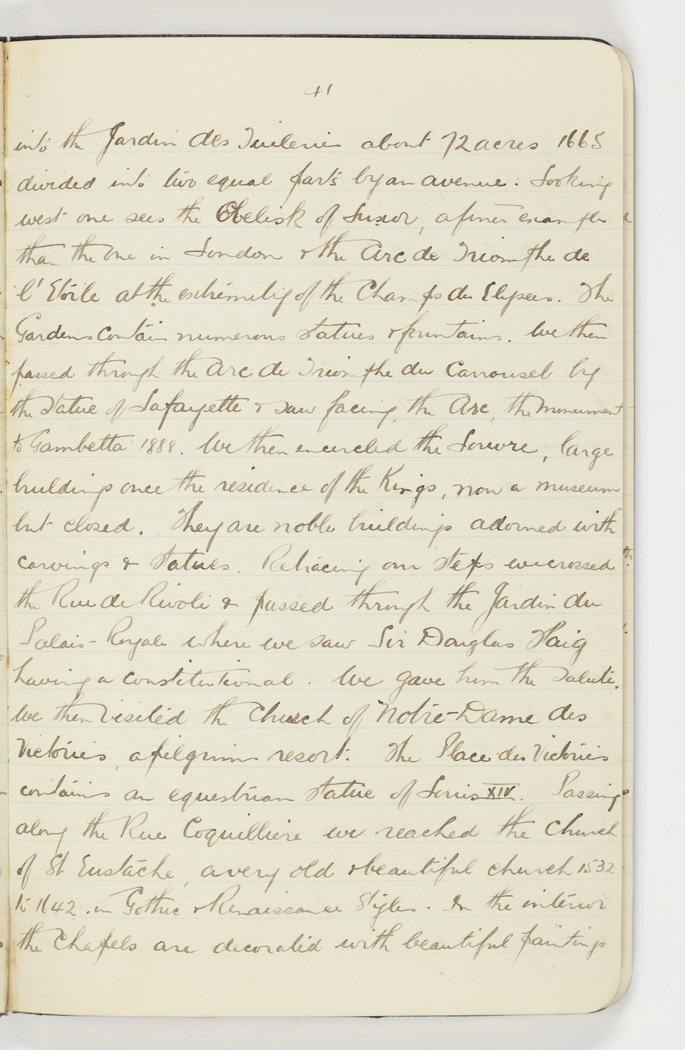 41
into the Jardin des Tuileries about 72 acres 1665
divided into two equal parts by an avenue. Looking
west one sees the Obelisk of Luxor, a finer example
than the one in London & the Arc de Triomphe de
l'Etoile at the extremity of the Champs des Elysees. The
Gardens contain numerous statues & fountains. We then
passed through the Arc de Triomphe du Carrousel by
the Statue of Lafayette & saw facing the Arc, the monument
to Gambetta 1888. We then encircled the Louvre, large
buildings once the residence of the Kings, now a museum
but closed. They are noble buildings adorned with
carvings & statues. Retracing our steps we crossed
the Rue de Rivoli & passed through the Jardin du
Palais-Royale where we saw Sir Douglas Haig
having a constitutional. We gave him the salute.
We then visited the Church of Notre-Dame des
Victoires, a pilgrims resort. The Place des Victoires
contains an equestrian statue of Louis XIV. Passing
along the Rue Coquilliere we reached the Church
of St Eustache, a very old & beautiful church 1532
to 1642 in Gothic & Renaissance Styles. In the interior
the Chapels are decorated with beautiful paintings